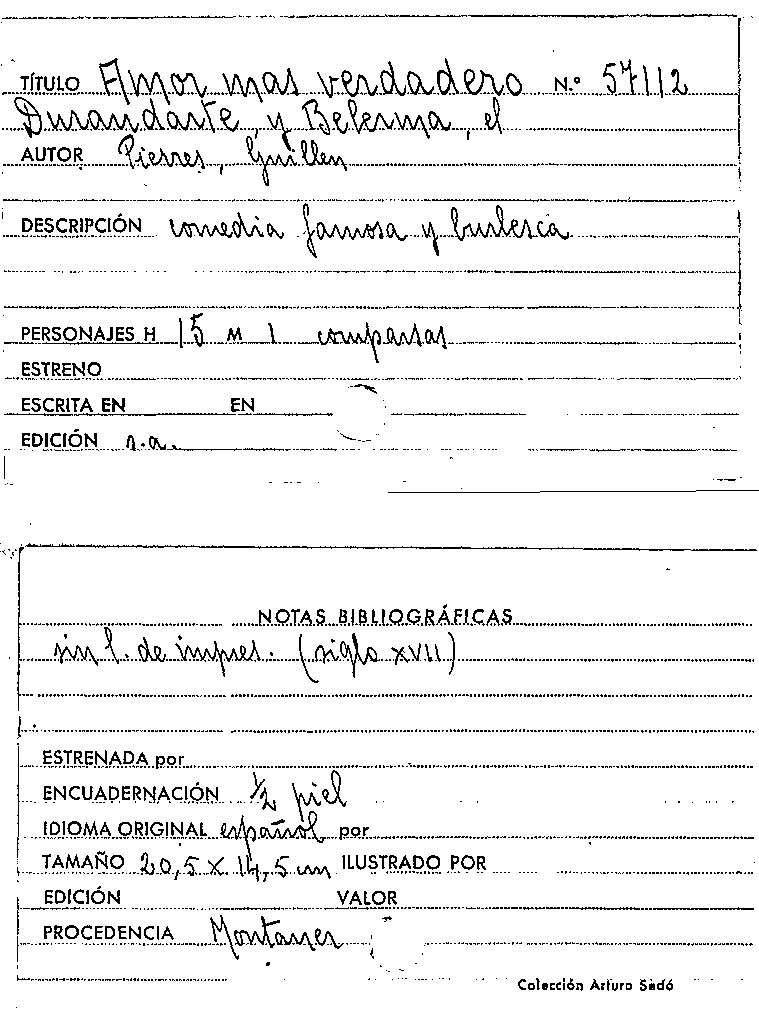 TÍTULO Amor mas verdadero N.º 57112
Durandarte, y Belerma, el
AUTOR Pierres, Guillen
DESCRIPCIÓN comedia famosa y burlesca
PERSONAJES H 15 M 1 comparsas
ESTRENO
ESCRITA EN EN
EDICIÓN s.a.
NOTAS BIBLIOGRÁFICAS
sin l. de impres. (siglo XVII)
ESTRENADA por
ENCUADERNACIÓN ½ piel
IDIOMA ORIGINAL español por
TAMAÑO 20,5 x 14,5 cm ILUSTRADO POR
EDICIÓN VALOR
PROCEDENCIA Montaner
Colección Arturo Sedó